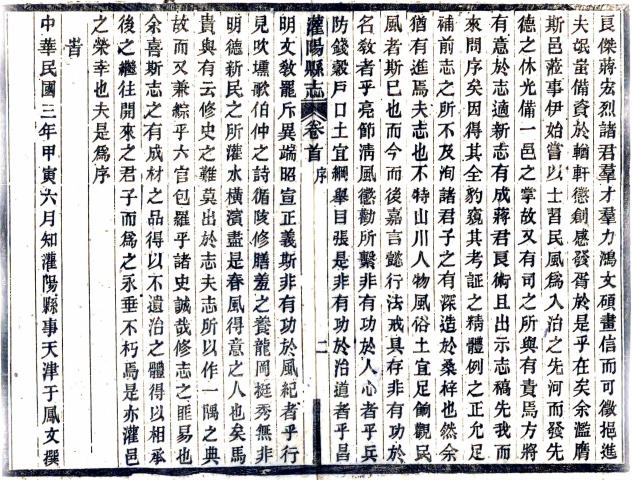 良傑蔣宏烈諸君羣才羣力鴻文碩畫信而可徵挹進
夫氓蚩備資於輶軒懲創感發胥於是乎在矣余濫膺
斯邑蒞事伊始嘗以士習民風為入治之先河而發先
德之休光備一邑之掌故又有司之所與有責焉方將
有意於志適新志有成蔣君良術且出示志稿先我而
來問序矣因得其全豹窺其考証之精體例之正允足
補前志之所不及洵諸君子之有深造於桑梓也然余
猶有進焉夫志也不特山川人物風俗土宜足備觀民
風者斯已也而今而後嘉言懿行法戒具存非有功於
名教者乎亮節清風懲勸所繫非有功於人心者乎兵
防錢穀戶口土宜綱舉目張是非有功於治道者乎昌
灌陽縣志 卷首 序 二
明文教罷斥異端昭宣正義斯非有功於風紀者乎行
見吹壎歌伯仲之詩循陔修膳羞之養龍岡挺秀無非
明德新民之所灌水橫濱盡是春風得意之人也矣馬
貴與有云修史之難莫出於志夫志所以作一隅之典
故而又兼綜乎六官包羅乎諸史誠哉修志之匪易也
余喜斯志之有成材之品得以不遺治之體得以相承
後之繼往開來之君子而為之永垂不朽焉是亦灌邑
之榮幸也夫是為序
旹
中華民國三年甲寅六月知灌陽縣事天津于鳳文撰